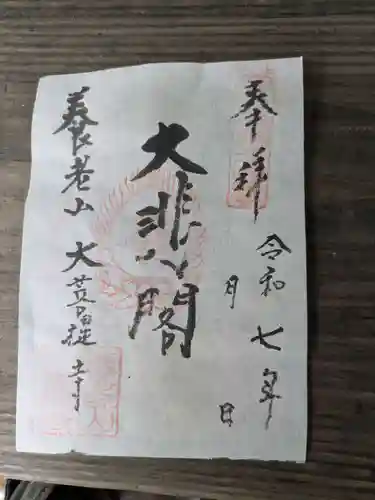 奉拝
令和七年
月
日
大悲閣
養老山 大菩提寺